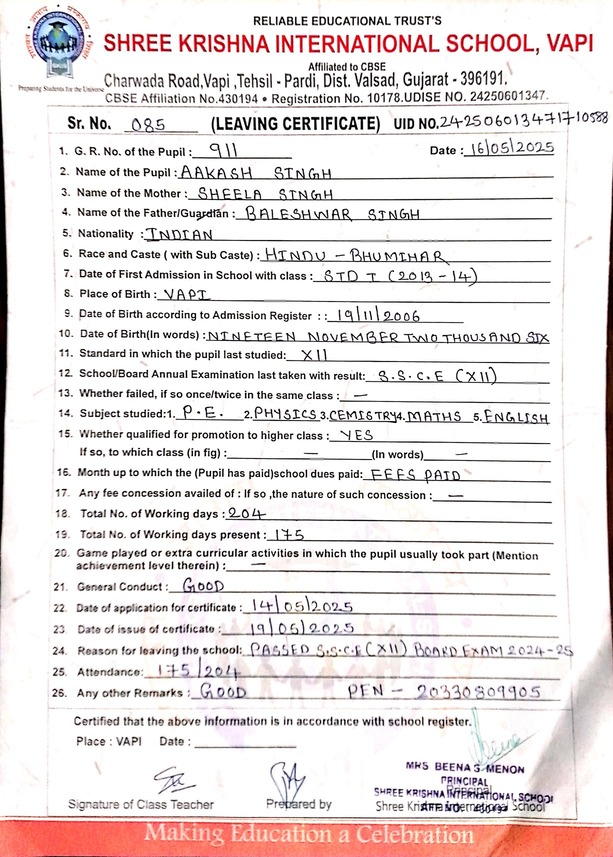 RELIABLE EDUCATIONAL TRUST'S
SHREE KRISHNA INTERNATIONAL SCHOOL, VAPI
Affiliated to CBSE
Preparing Students for the Universe
Charwada Road,Vapi ,Tehsil - Pardi, Dist. Valsad, Gujarat - 396191.
CBSE Affiliation No.430194 • Registration No. 10178.UDISE NO. 24250601347.
Sr. No. 085 (LEAVING CERTIFICATE) UID NO.242506013471710588
1. G. R. No. of the Pupil : 911 Date : 16/05/2025
2. Name of the Pupil : AAKASH SINGH
3. Name of the Mother : SHEELA SINGH
4. Name of the Father/Guardian : BALESHWAR SINGH
5. Nationality : INDIAN
6. Race and Caste ( with Sub Caste) : HINDU - BHUMIHAR
7. Date of First Admission in School with class : STD I (2013-14)
8. Place of Birth : VAPI
9. Date of Birth according to Admission Register : : 19/11/2006
10. Date of Birth(In words) : NINETEEN NOVEMBER TWO THOUSAND SIX
11. Standard in which the pupil last studied: XII
12. School/Board Annual Examination last taken with result: S.S.C.E (XII)
13. Whether failed, if so once/twice in the same class : —
14. Subject studied:1. P.E. 2.PHYSICS 3.CEMISTRY 4.MATHS 5.ENGLISH
15. Whether qualified for promotion to higher class : YES
If so, to which class (in fig) : — (In words) —
16. Month up to which the (Pupil has paid)school dues paid: FEES PAID
17. Any fee concession availed of : If so ,the nature of such concession : —
18. Total No. of Working days : 204
19. Total No. of Working days present : 175
20. Game played or extra curricular activities in which the pupil usually took part (Mention
achievement level therein) : —
21. General Conduct : GOOD
22. Date of application for certificate : 14/05/2025
23. Date of issue of certificate : 19/05/2025
24. Reason for leaving the school: PASSED S.S.C.E (XII) BOARD EXAM 2024-25
25. Attendance: 175/204
26. Any other Remarks : GOOD PEN - 20330809905
Certified that the above information is in accordance with school register.
Place : VAPI Date :
MRS BEENA S MENON
PRINCIPAL
SHREE KRISHNA INTERNATIONAL SCHOOL
Signature of Class Teacher Prepared by Shree Krishna International School
Making Education a Celebration